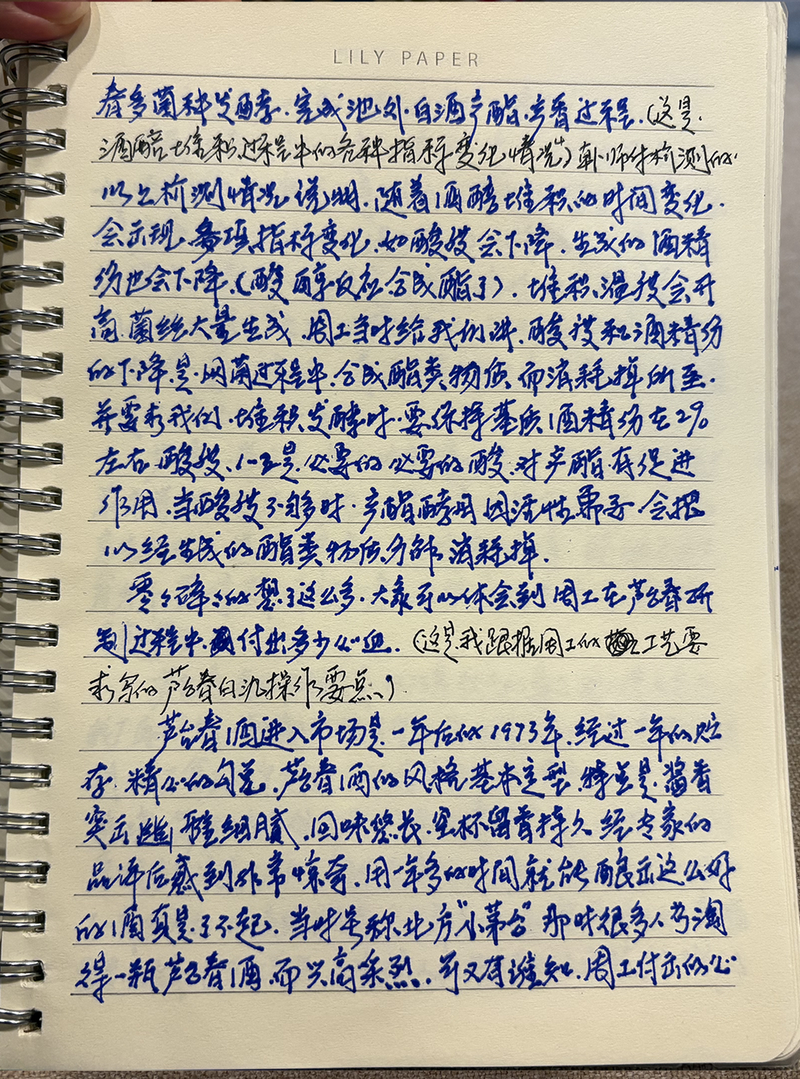 LILY PAPER
春多菌种发酵.完成池外.白酒产酯.产香过程.(这是.
酒醅堆积过程中的各种指标变化情况)靳师付检测的.
以上检测情况说明.随着酒醅堆积的时间变化.
会出现多项指标变化.如酸度会下降.生成的酒精
份也会下降.(酸醇反应合成酯了).堆积温度会升
高.菌丝大量生成.周工当时给我们讲.酸度和酒精份
的下降.是.网菌过程中.合成酯类物质而消耗掉所至.
并要求我们.堆积发酵时.要保持基质酒精份在2%
左右.酸度.1-2是.必要的必要的酸.对产酯有促进
作用.当酸度不够多时.产酯酵母因活性需要会把
以经生成的酯类物质分解.消耗掉.
零零碎碎的想了这么多.大家可以体会到周工在芦台春研
制过程中付出多少心血.(这是.我跟据周工的工艺要
求写的芦台春白酒操作要点.)
芦台春酒进入市场是.一年后的1973年.经过一年的贮
存.精心的勾兑.芦台春酒的风格基本定型.特点是.酱香
突出.幽雅细腻.回味悠长.空杯留香持久.经专家的
品评后感到非常惊奇.用一年多的时间就能酿出这么好
的酒真是了不起.当时号称北方"小茅台"那时很多人为淘
得一瓶芦台春酒.而兴高采烈.可又有谁知.周工付出的心